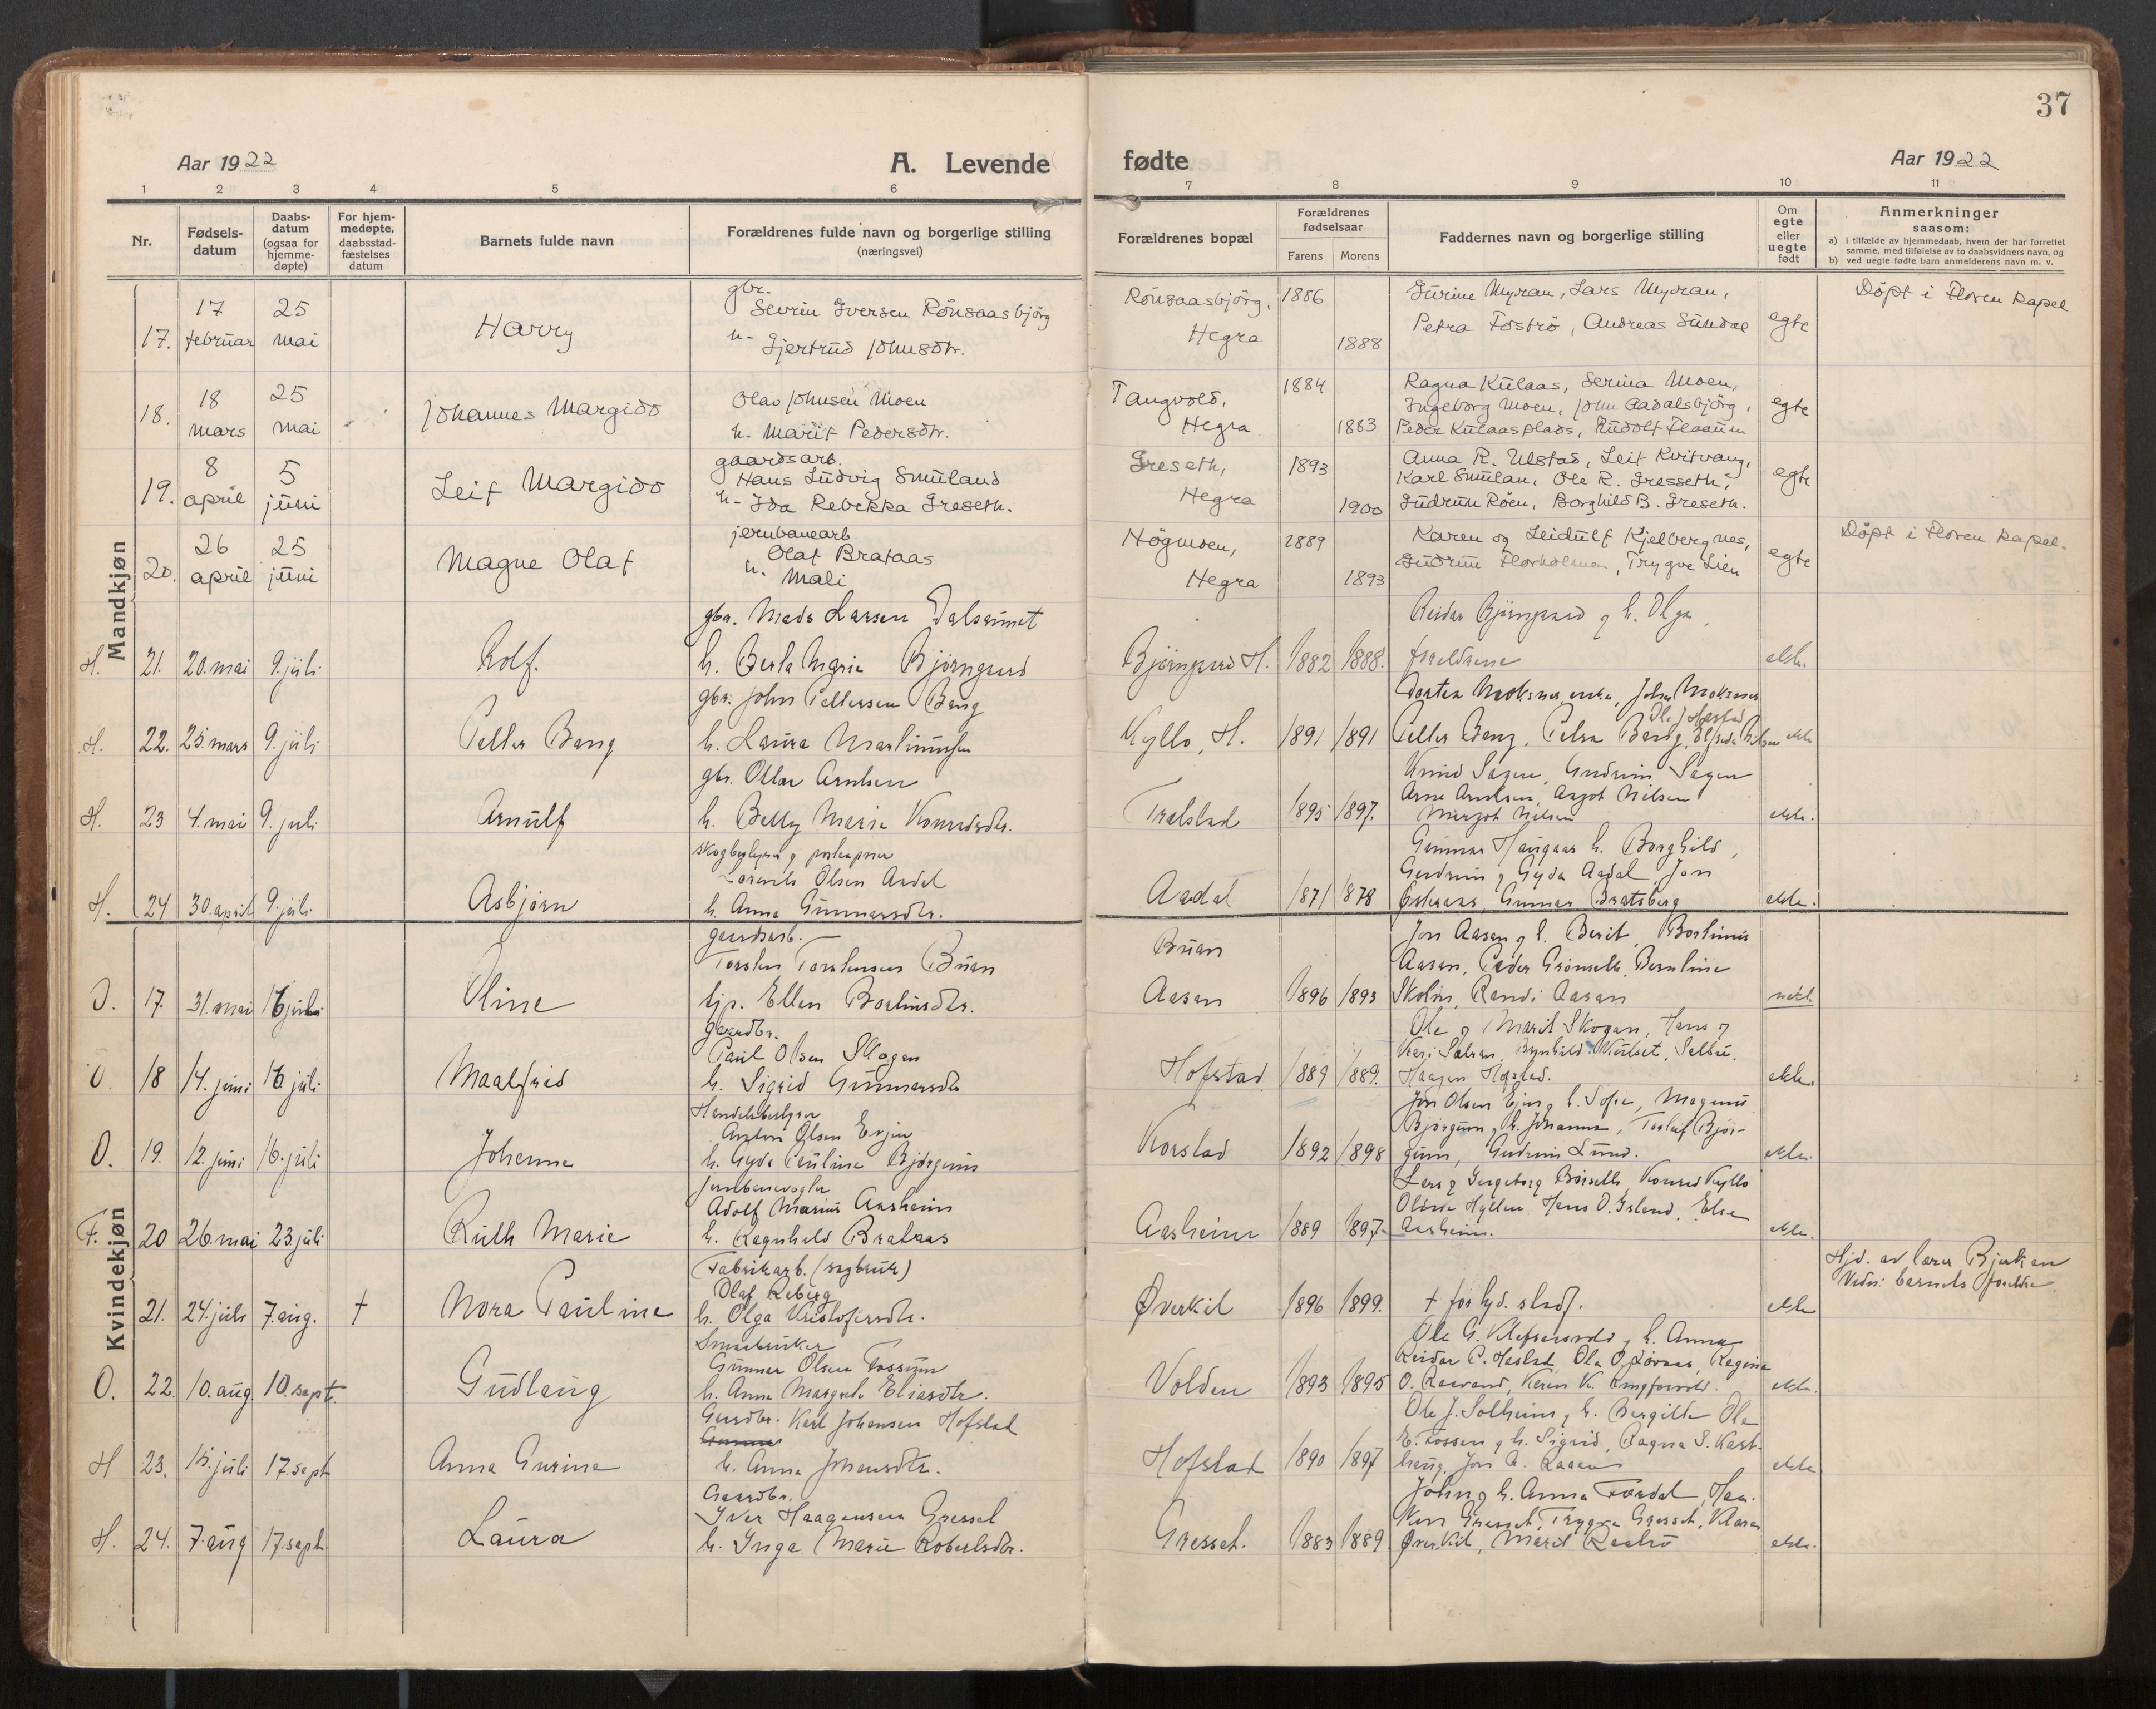 37
Aar 1922
A. Levende
fødte
Aar 1922
1 2 3 4 5 6 7 8 9 10 11
Nr.
Fødsels-
datum
Daabs-
datum
(ogsaa for
hjemme-
døpte)
For hjem-
medøpte,
daabsstad-
fæstelses
datum
Barnets fulde navn
Forældrenes fulde navn og borgerlige stilling
(næringsvei)
Forældrenes bopæl
Forældrenes
fødselsaar
Farens Morens
Faddernes navn og borgerlige stilling
Om
egte
eller
uegte
født
Anmerkninger
saasom:
a) i tilfælde av hjemmedaab, hvem der har forrettet
samme, med tilføielse av to daabsvidners navn, og
b) ved uegte fødte barn anmelderens navn m. v.
Mandkjøn
17. 17 februar 25 mai
Harry
gbr.
Sevrin Iversen Rönsaasbjörg
h- Gjertrud Johnsdtr.
Rönsaasbjörg,
Hegra
1886 1888
Gurine Myran, Lars Myran,
Petra Fosträ, Andreas Sundal
egte
Döpt i Floren kapel
18. 18 mars 25 mai
Johannes Margido
Olav Johnsen Moen
h. Marit Pedersdtr.
Tangvold,
Hegra
1884 1883
Ragna Kulaas, Serina Moen,
Ingeborg Moen, John Aadalsbjörg,
Peder Kulaasplads, Rudolf Flaaum
egte
19. 8 april 5 juni
Leif Margido
gaardsarb.
Hans Ludvig Smuland
h- Ida Rebekka Greseth.
Greseth,
Hegra
1893 1900
Anna R. Ulstad, Leif Kvitvang,
Karl Smulan, Ole R. Gresseth,
Gudrun Röen, Borghild B. Greseth.
egte
20. 26 april 25 juni
Magne Olaf
jernbanearb
Olaf Brataas
h. Mali
Högmoen,
Hegra
1889 1893
Karen og Leidulf Kjelbergnes,
Gudrun Florholmen, Trygve Lien
egte
Döpt i Floren kapel.
H. 21. 20. mai 9. juli
Rolf.
gbr. Mads Larsen Dalsaunet
h. Berta Marie Bjørngaard
Bjørngaard H. 1882 1888.
Reidar Bjørngaard og h. Olga,
foreldrene
ekte.
H. 22. 25. mars 9. juli
Petter Bang
gbr. John Pettersen Bang
h. Laura Martinussen
Kyllo, H. 1891 1891
John Moksnes
Ole J Hastad
Petter Bang, Petra Bang,
ekte
H. 23 4. mai 9. juli
Arnulf
gbr. Ottar Arntsen
h. Betty Marie Konradsdtr.
Trætstad 1895 1897.
Gudrun Sagen
Arne Arntsen, Aagot Nilsen
Margot Nilsen
ekte.
H. 24 30. april 9. juli
Asbjørn
Lorents Olsen Aadal
h. Anna Gunnarsdtr.
Aadal 1871 1878
Gunnar Haugaas h. Borghild,
Gudrun og Gyda Aadal, Jon
Østeraas, Gunnar Bratsberg
ekte.
Kvindekjøn
O. 17. 31. mai 16 juli
Oline
gaardsarb.
Torsten Torstensen Buan
tjp. Ellen Bortinsdtr.
Buan
Aasan 1896 1893
Jon Aasan og h. Berit, Bortinus
Aasan, Peder Grønseth, Berntine
Randi Aasan
uekt.
O. 18 14. juni 16 juli
Maalfrid
Gaardbr.
Paul Olsen Skogan
h. Sigrid Gunnarsdtr
Hofstad 1889 1889.
Ole og Marit Skogan, Hans og
Kulset, Selbu.
Haagen Hofstad.
ekte.
O. 19. 12. juni 16. juli
Johanna
Handelsbestyrer
Anton Olsen Evjen
h. Gyda Pauline Bjørgum
Korstad 1892 1898
Jon Olsen Evjen og h. Sofie, Magnus
Bjørgum og h. Johanna, Torlaf Bjør-
gum, Gudrun Lund.
ekte.
F. 20 26. mai 23 juli
Ruth Marie
Jernbanevogter
Adolf Marius Aasheim
h. Ragnhild Brataas
Aasheim 1889 1897
Lars og Ingeborg Börseth, Konrad Kyllo
Hans O. Island, Else
Aasheim.
ekte.
21. 24. juli 7. aug. †
Nora Pauline
Fabrikarb. (sagbruk)
Olaf Reberg
h. Olga Kristofersdtr.
Øverkil 1896 1899.
† før kyd. stadf.
ekte
Hjd. av lærer Bjerkan
Vidn: barnets foreldre
O. 22. 10. aug. 10. sept.
Gudlaug
Smaabruker
Gunnar Olsen Fossum
h. Anna Margrete Eliasdtr.
Volden 1893 1895
Ole G. Klefsaasvold og h. Anna
Reidar P. Hastad, Ola O. Lövaas, Regina
ekte.
H 23. 15. juli 17. sept
Anna Gurine
Gaardbr. Karl Johansen Hofstad
h. Anna Johansdtr.
Hofstad 1890 1897
Ole J. Solheim og h. Bergitte Ole
E. Fossen og h. Sigrid, Ragna S. Kast-
haug, Jon A. Raaen
ekte.
H. 24. 7. aug 17. sept.
Laura
Gaardbr.
Iver Haagensen Gresset
h. Inga Marie Robertsdtr.
Gresset. 1883 1889
John og h. Anna Fordal, Haa-
kon Gresset, Trygve Gresset, Klara
Øverkil, Marit Rastrø
ekte.